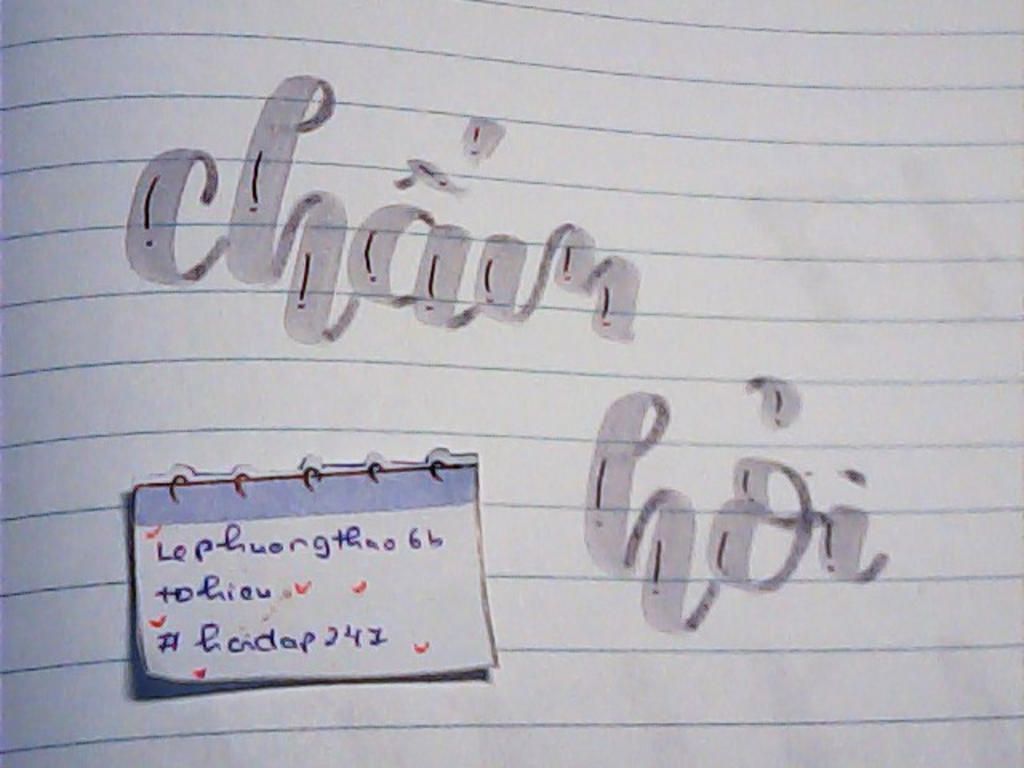 chấm
hỏi
Lephuongthao6b
tohieu
# hoidap247